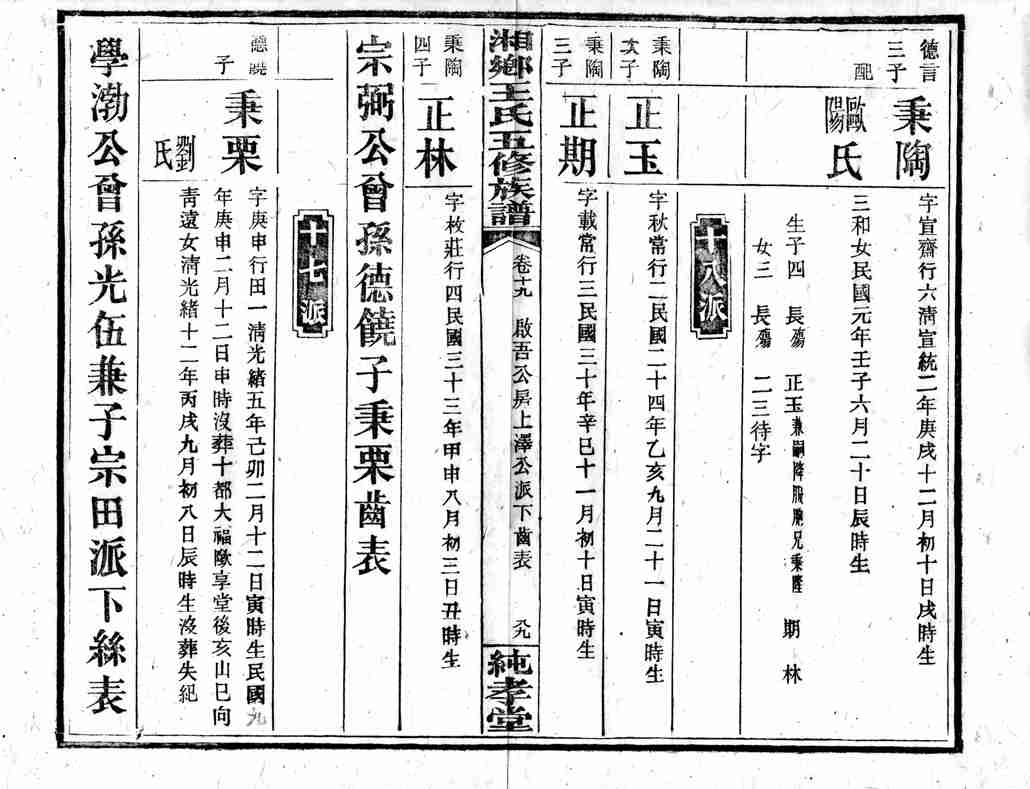 德言
三子
秉陶
字宣齋行六清宣統二年庚戌十二月初十日戌時生
配
歐陽氏
三和女民國元年壬子六月二十日辰時生
生子四 長殤 正玉兼嗣降服胞兄秉陸 期 林
女三 長殤 二三待字
十八派
秉陶
次子
正玉
字秋常行二民國二十四年乙亥九月二十一日寅時生
秉陶
三子
正期
字載常行三民國三十年辛巳十一月初十日寅時生
湘鄉王氏五修族譜
卷十九 啟吾公房上澤公派下齒表 九
純孝堂
秉陶
四子
正林
字枚莊行四民國三十三年甲申八月初三日丑時生
宗弼公曾孫德饒子秉栗齒表
十七派
德饒
子
秉栗
字庚申行田一清光緒五年己卯二月十二日寅時生民國九
年庚申二月十二日申時沒葬十都大福歐享堂後亥山巳向
劉氏
青遠女清光緒十二年丙戌九月初八日辰時生沒葬失紀
學渤公曾孫光伍兼子宗田派下絲表